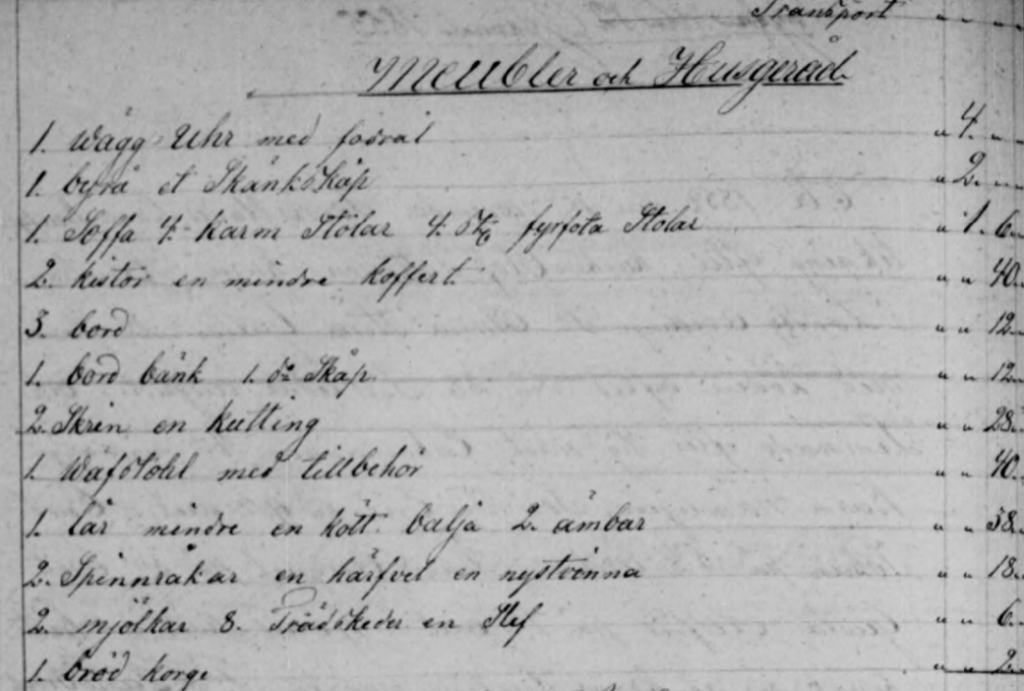 Transport " " "
Meubler och Husgeråd
1. wägg Uhr med fodral " 4. "
1. byrå et Skänkskåp " 2. "
1. Soffa 4. karm Stolar 4. St. fyrfota Stolar " 1. 6.
2. kistor en mindre koffert " " 40.
3. bord " " 12.
1. bord bänk 1. do Skåp " " 12.
2. Skrin en kutting " " 28.
1. Wäfstohl med tillbehör " " 40.
1. lår mindre en kött balja 2. ämbar " " 38.
2. Spinnråkar en härfvel en nystvinna " " 18.
2. mjölkar 8. Trädskeder en Slef " " 6.
1. bröd korge " " 2.